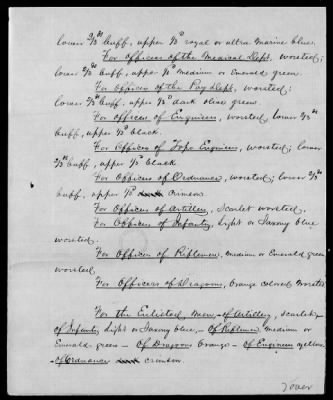 lower 2/3ds buff, upper 1/3d royal or ultra marine blue.
For officers of the Medical Dept, worsted;
lower 2/3ds buff, upper 1/3d medium or Emerald green.
For officers of the Pay Dept, worsted;
lower 2/3ds buff, upper 1/3d dark olive green.
For officers of Engineers, worsted, lower 2/3ds
buff, upper 1/3d black.
For Officers of Topo Engineers, worsted; lower
2/3ds buff, upper 1/3d black
For Officers of Ordnance, worsted; lower 2/3ds
buff, upper 1/3d crimson.
For Officers of Artillery, Scarlet worsted.
For Officers of Infantry, light or Saxony blue
worsted.
For Officers of Riflemen, Medium or Emerald green
worsted,
For Officers of Dragoons, Orange colored worsted
For the Enlisted Men, - of Artillery, scarlet, -
of Infantry light or Saxony blue, - Of Riflemen medium or
Emerald green - Of Dragoons Orange - Of Engineers yellow
- of Ordnance crimson.
over